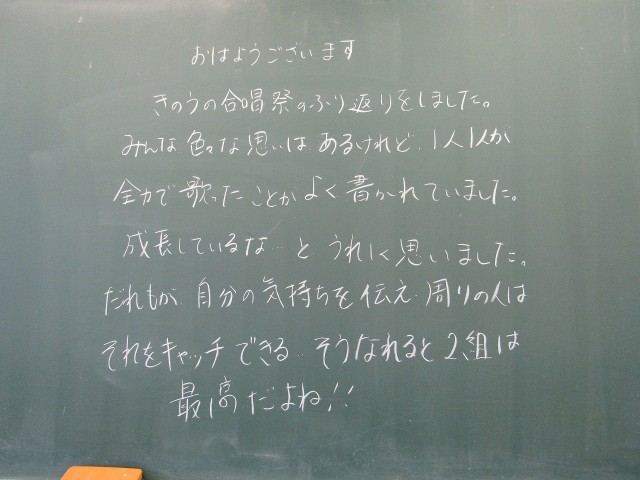 おはようございます
きのうの合唱祭のふり返りをしました。
みんな色々な思いはあるけれど、1人1人が
全力で歌ったことがよく書かれていました。
成長しているな…と うれしく思いました。
だれもが、自分の気持ちを伝え、周りの人は
それをキャッチできる…そうなれると2組は
最高だよね!!